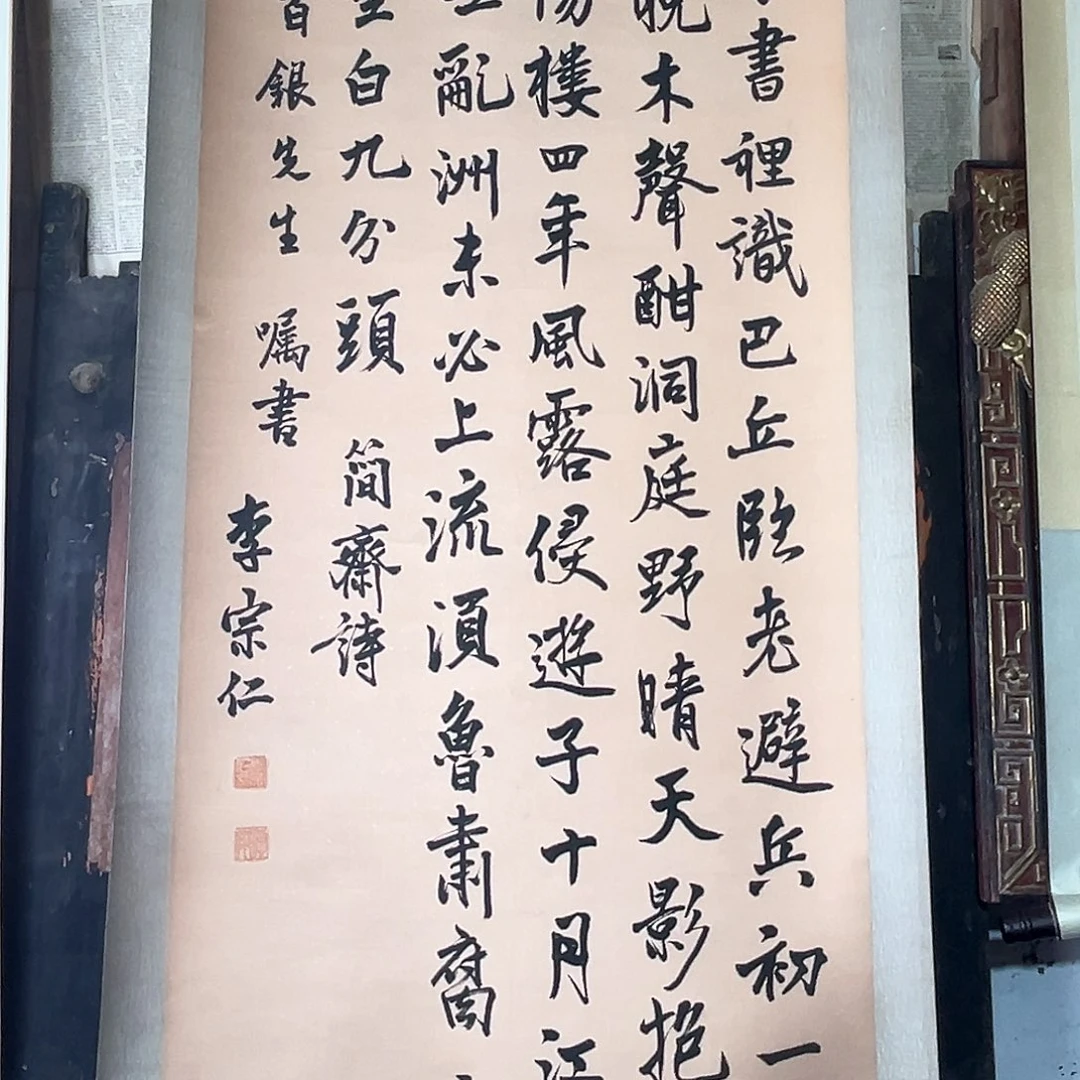 書裡識巴丘臨老避兵初一
晚木聲酣洞庭野晴天影抱
陽樓四年風露侵遊子十月江
亂洲未必上流須魯肅腐
空白九分頭 簡齋詩
銀先生 嘱書
李宗仁